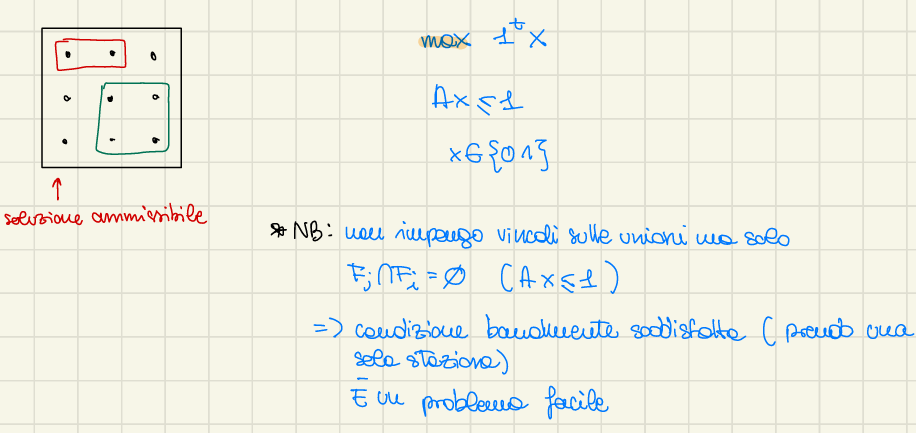 max 1^t x
Ax ≤ 1
x ∈ {0 1}
soluzione ammissibile
* NB: non impongo vincoli sulle unioni ma solo
Fj ∩ Fi = ∅ (Ax ≤ 1)
=> condizione banalmente soddisfatta (prendo una
sola stazione)
È un problema facile